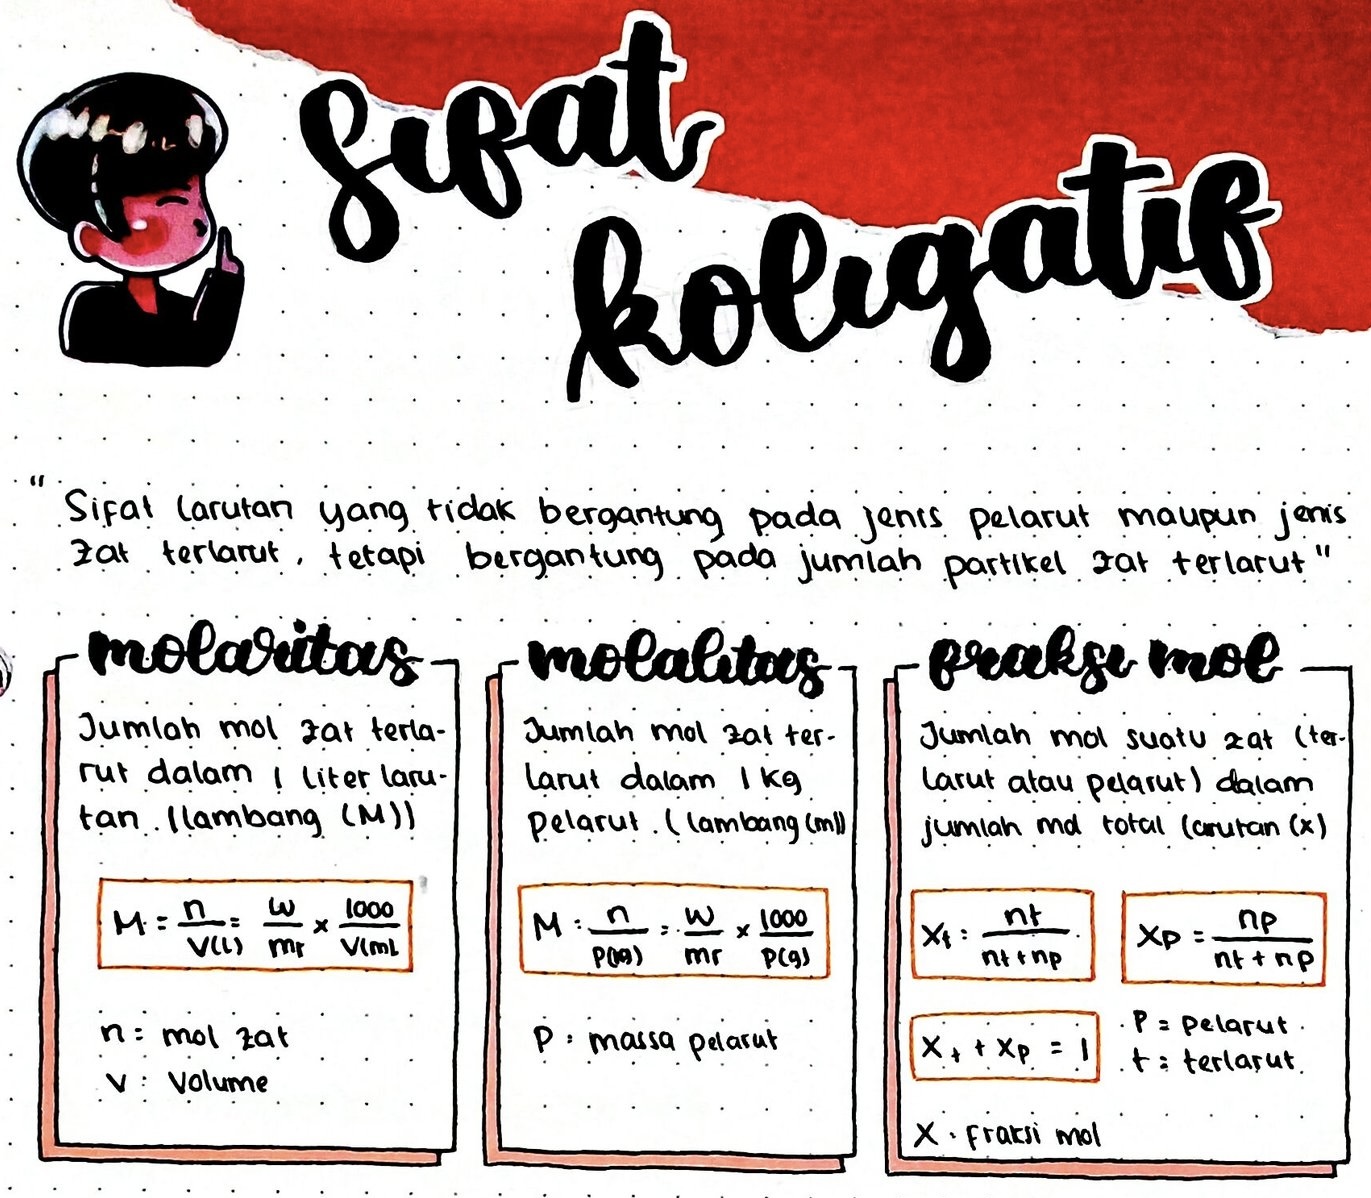 Sifat
koligatif
"Sifat larutan yang tidak bergantung pada jenis pelarut maupun jenis
zat terlarut, tetapi bergantung pada jumlah partikel zat terlarut"
molaritas
Jumlah mol zat terla-
rut dalam 1 liter laru-
tan (lambang (M))
M = n/V(L) = w/mr x 1000/V(mL
n = mol zat
V : Volume
molalitas
Jumlah mol zat ter-
larut dalam 1 kg
pelarut. (lambang (m))
M = n/P(kg) = w/mr x 1000/P(g)
P = massa pelarut
fraksi mol
Jumlah mol suatu zat (ter-
larut atau pelarut) dalam
jumlah mol total larutan (x)
Xt = nt/nt + np
Xp = np/nt + np
Xt + Xp = 1
P = pelarut
t = terlarut
X = fraksi mol